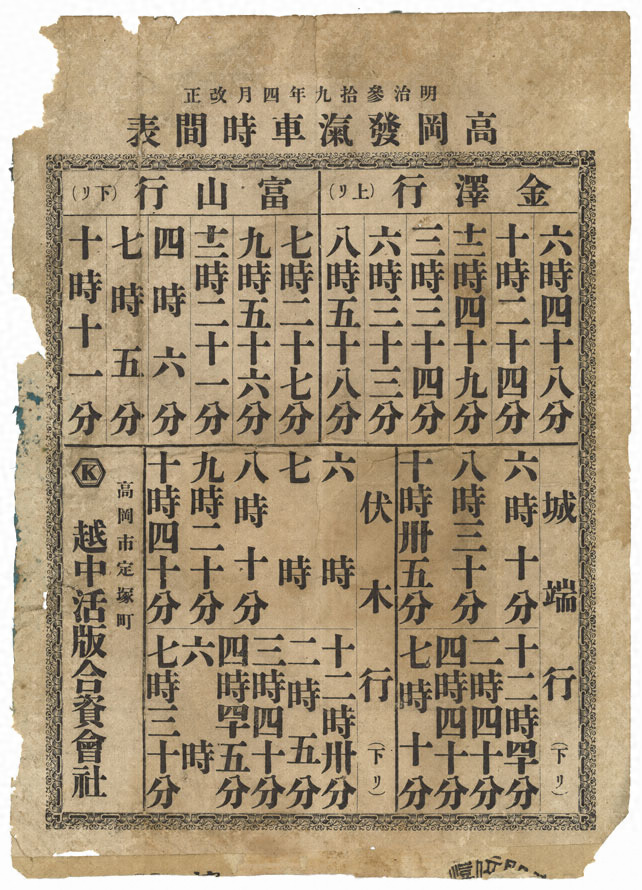 明治參拾九年四月改正
高岡發滊車時間表
金澤行(上リ)
六時四十八分
十時二十四分
十二時四十九分
三時三十四分
六時三十三分
八時五十八分
富山行(下リ)
七時二十七分
九時五十六分
十二時二十一分
四時六分
七時五分
十時十一分
城端行(下リ)
六時十分
八時三十分
十時卅五分
十二時四十分
二時四十分
四時四十分
七時十分
伏木行(下リ)
六時
七時
八時十分
九時二十分
十時四十分
十二時卅分
二時五分
三時四十分
四時四十五分
六時
七時三十分
高岡市定塚町
K
越中活版合資會社